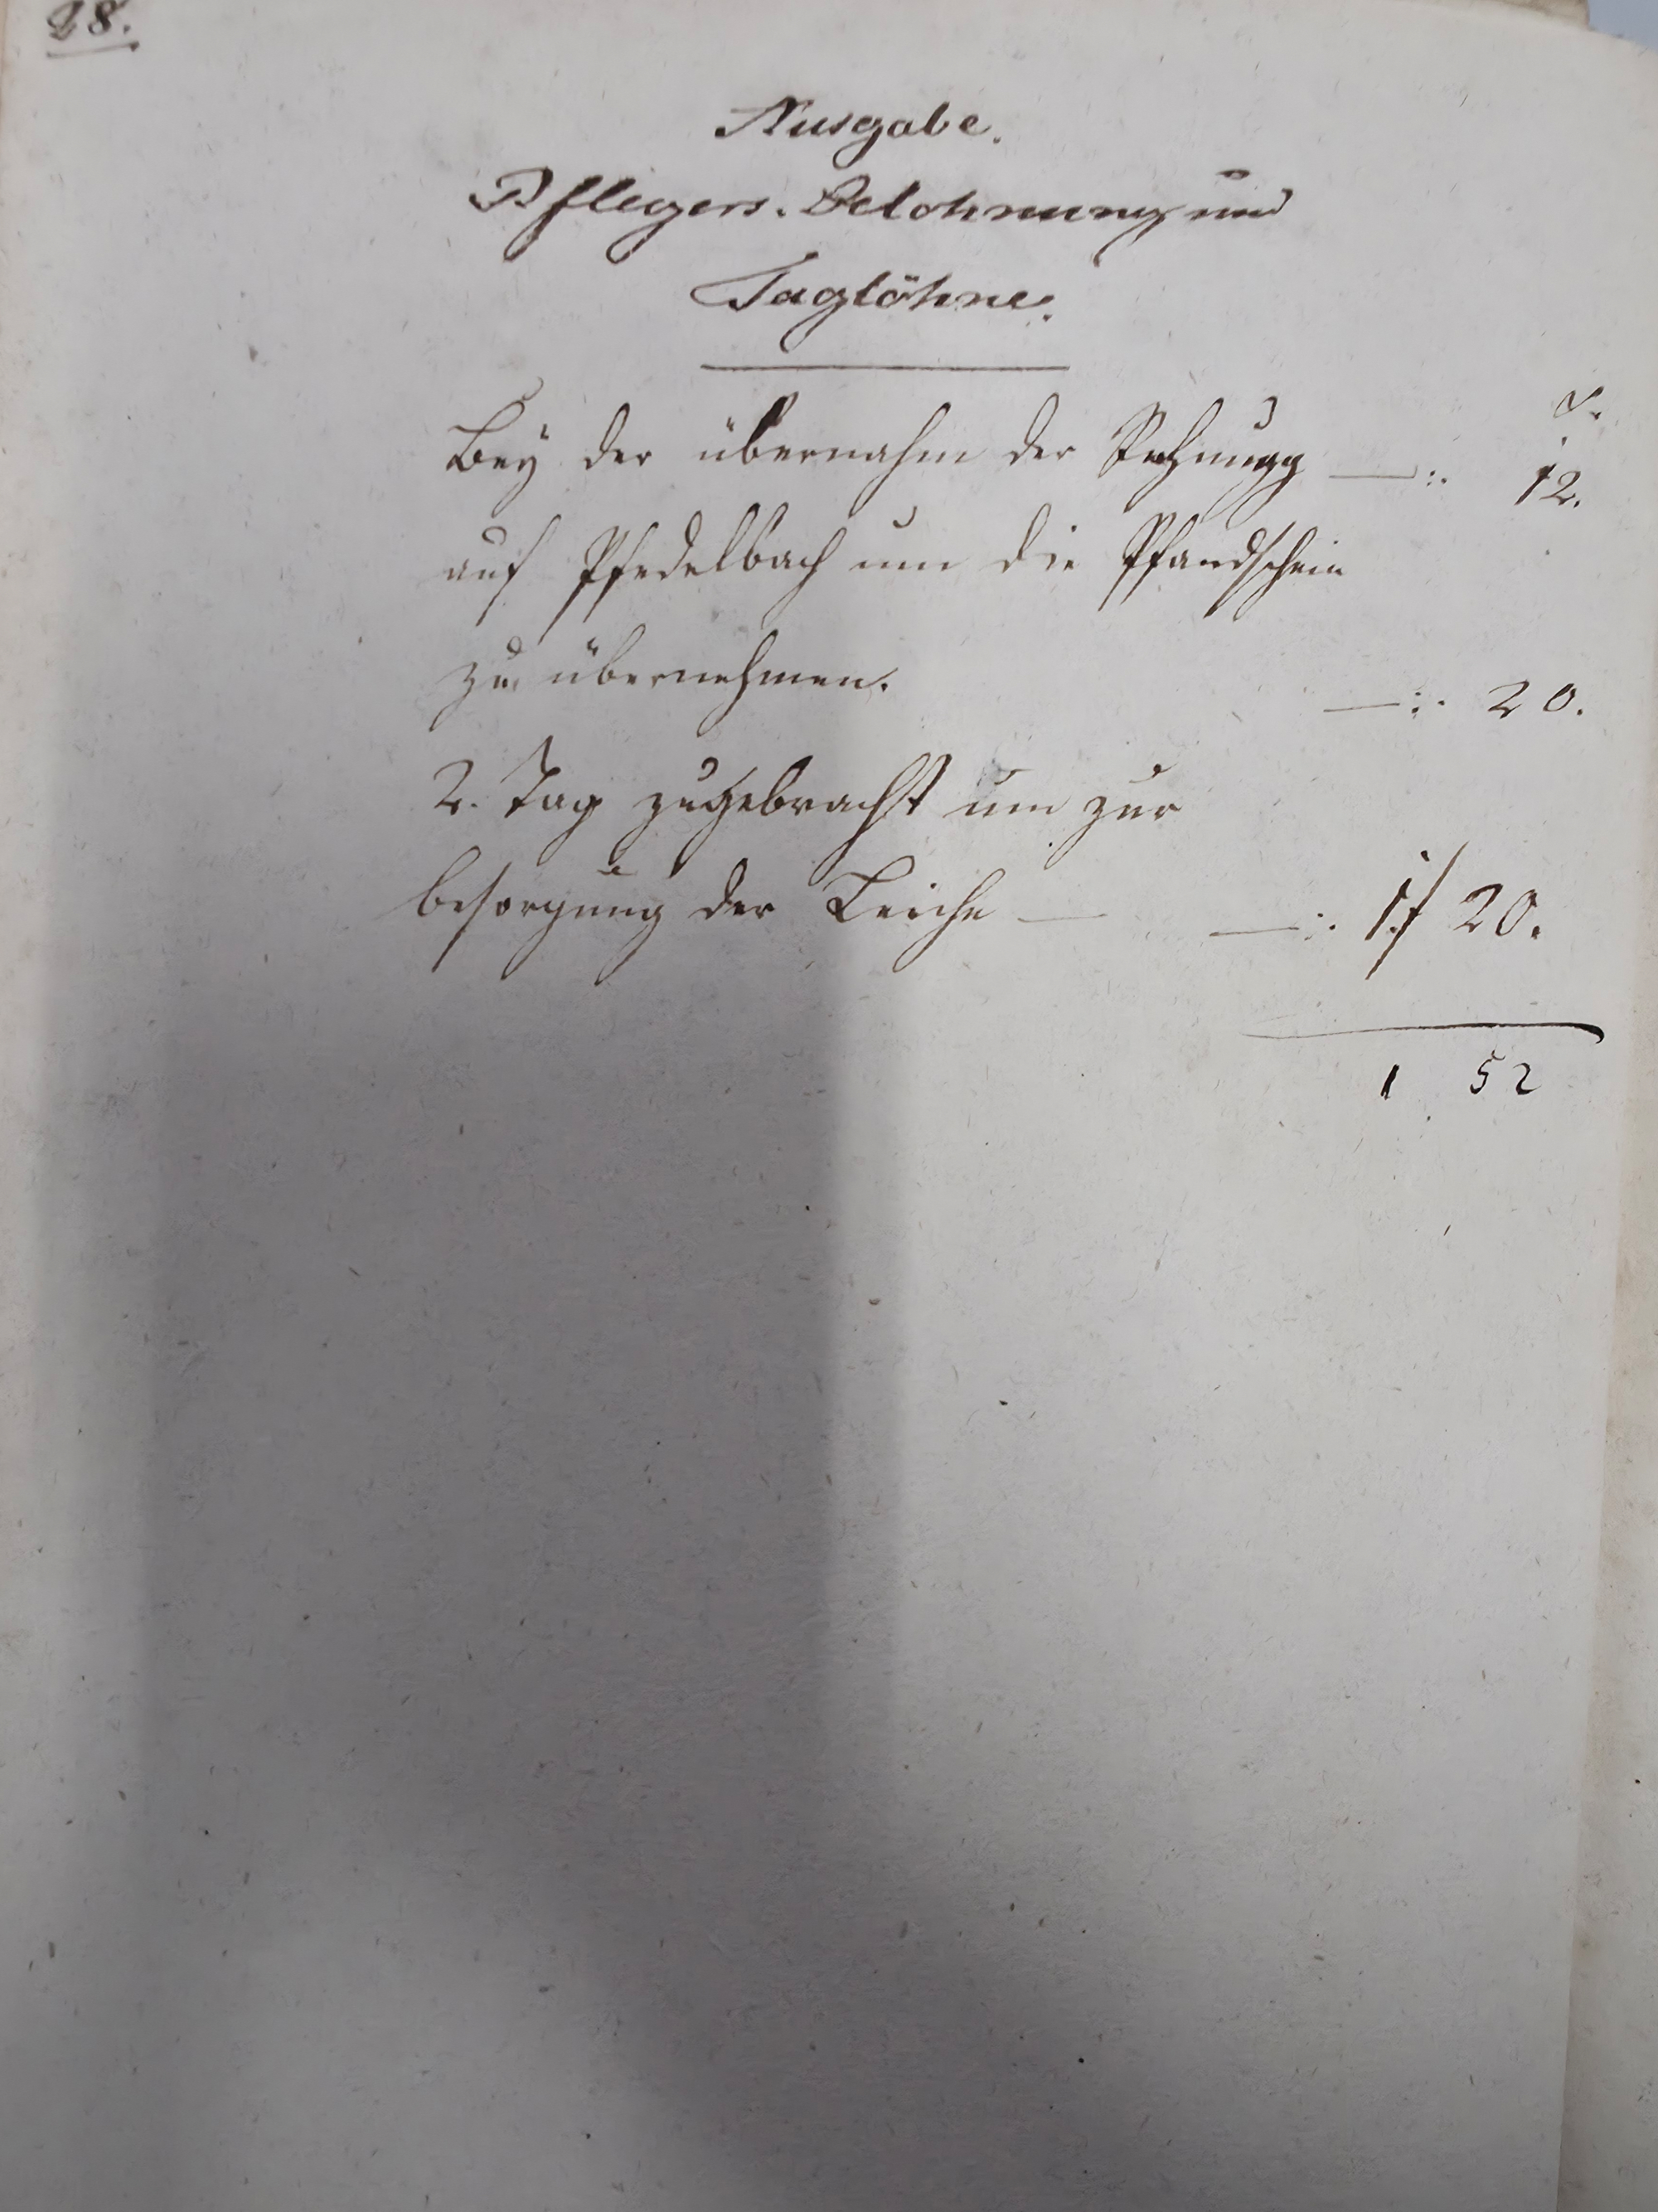 28.
Ausgabe.
Pflegers. Belohnung und
Taglöhne.
x.
Bey der übernahm der Rechnungg —:. 12.
auf Pfedelbach um die Pfandschein
zu übernehmen. —:. 20.
2. Tag zugebracht um zur
besorgung der Leiche — —:. 1.f 20.
1 52